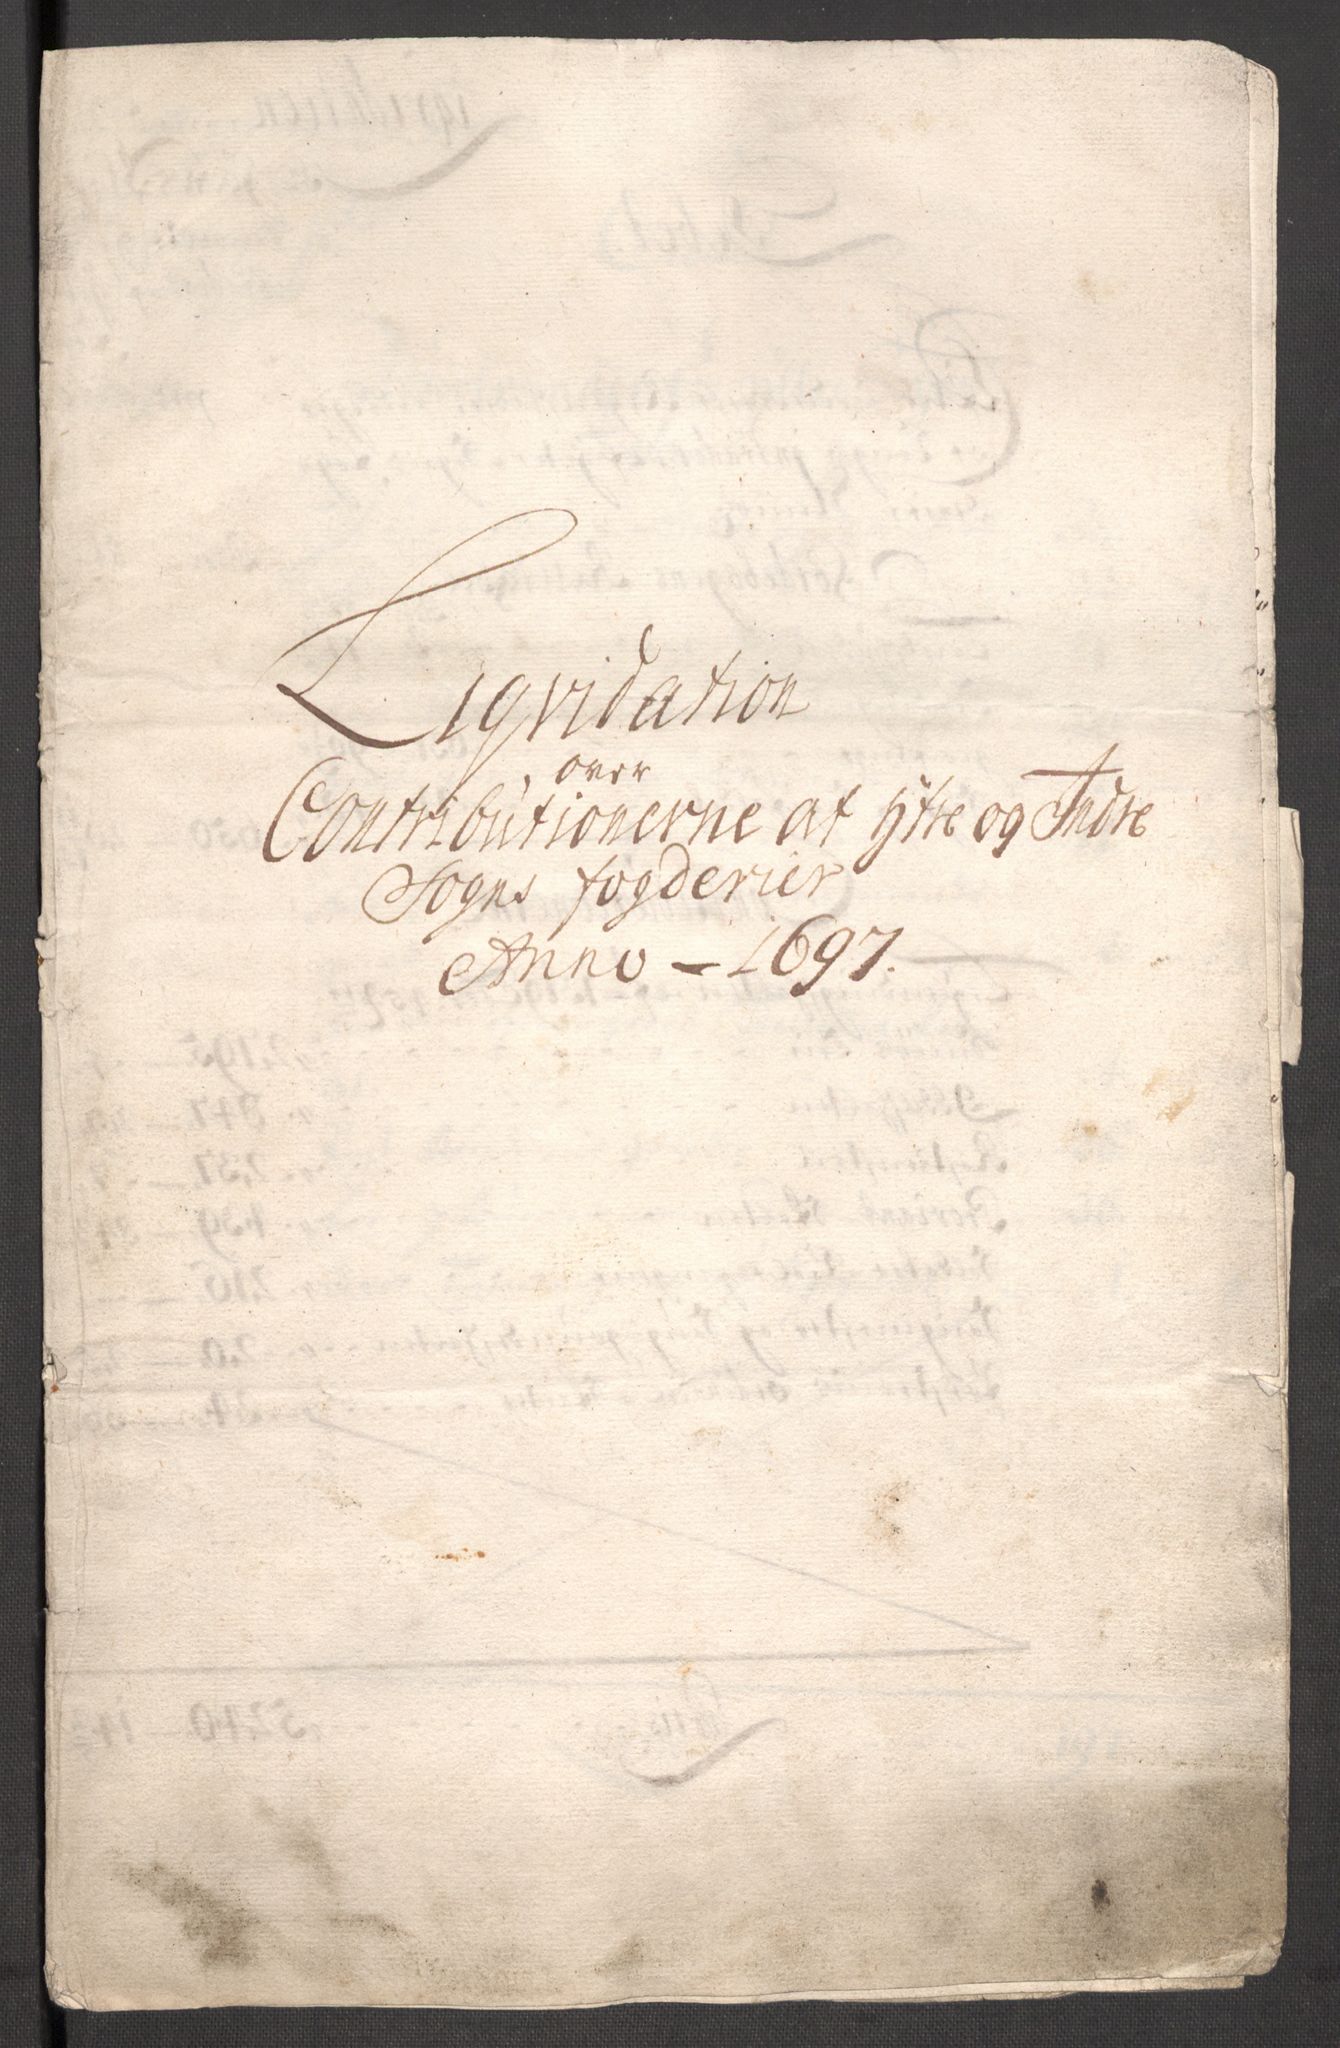 Liqvidation
over
Contributionerne af ytre og Indre
Sogns fogderier
Anno – 1697.